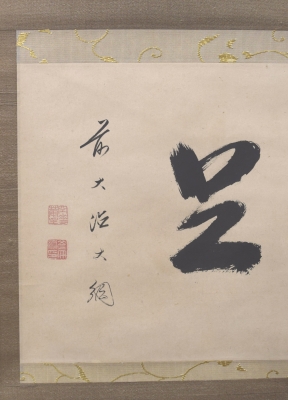 足
前大徳大綱